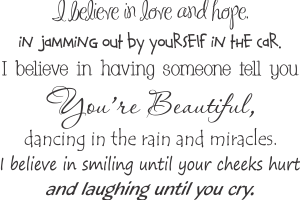 I believe in love and hope.
in jamming out by yourself in the car.
I believe in having someone tell you
You're Beautiful,
dancing in the rain and miracles.
I believe in smiling until your cheeks hurt
and laughing until you cry.